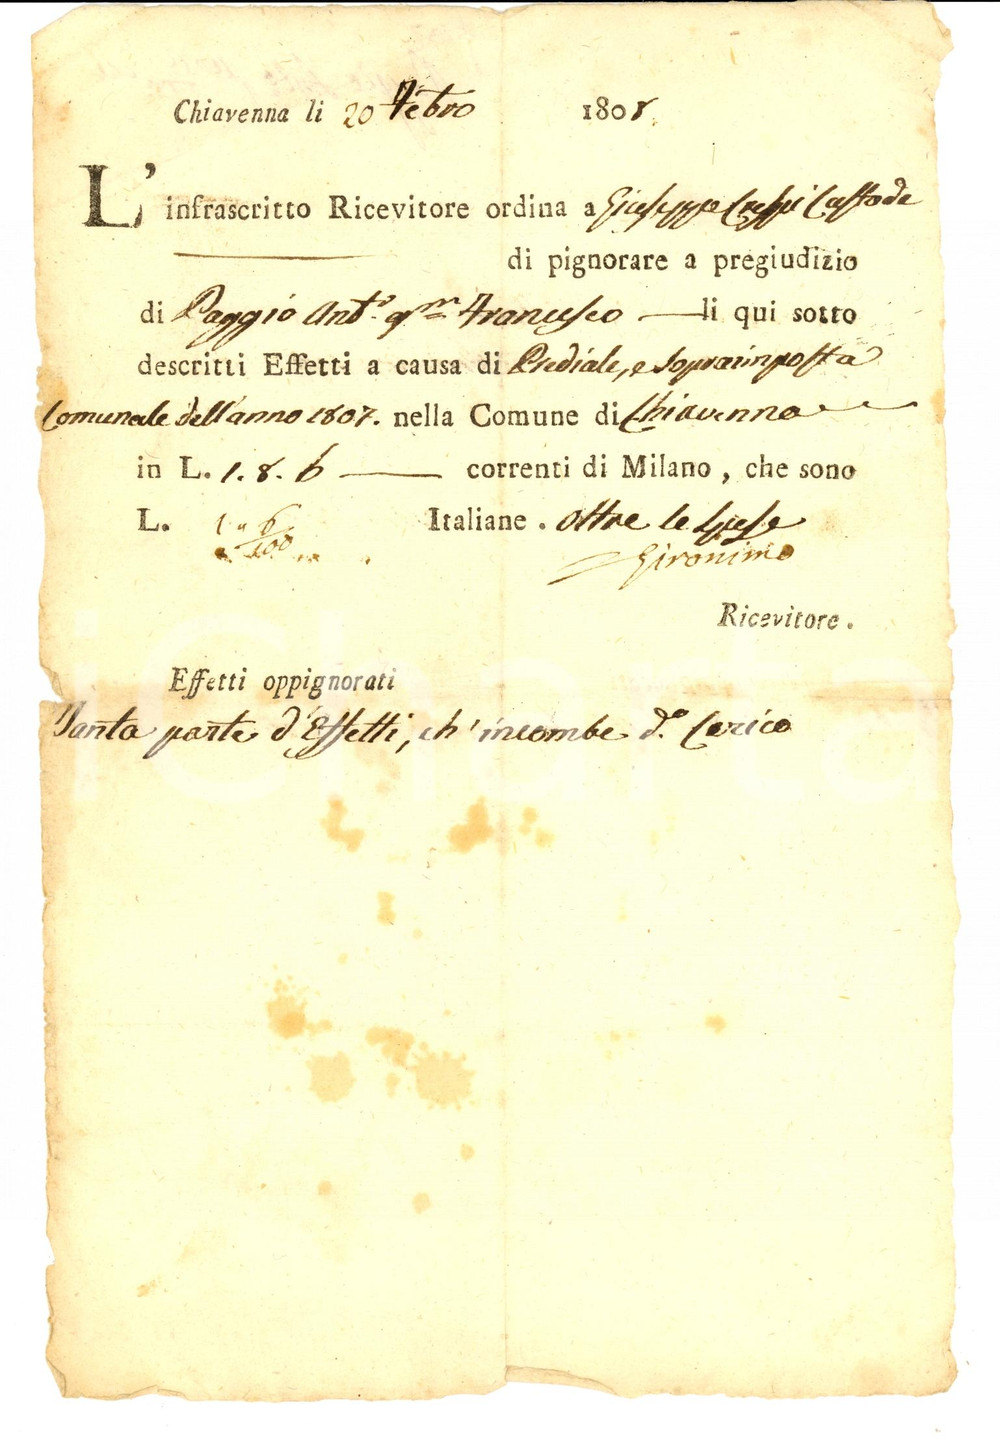 Chiavenna li 20 Febro 1808.
L' infrascritto Ricevitore ordina a Giuseppe Crespi Custode
di pignorare a pregiudizio
di Paggio Ant.o qm Francesco li qui sotto
descritti Effetti a causa di Prediale, e Sopraimposta
Comunale dell'anno 1807. nella Comune di Chiavenna
in L. 1. 8. 6 correnti di Milano, che sono
L. 1 Italiane. oltre le Spese
Gironimo
Ricevitore.
Effetti oppignorati
Tanta parte d'Effetti, ch' incombe d.o Carico